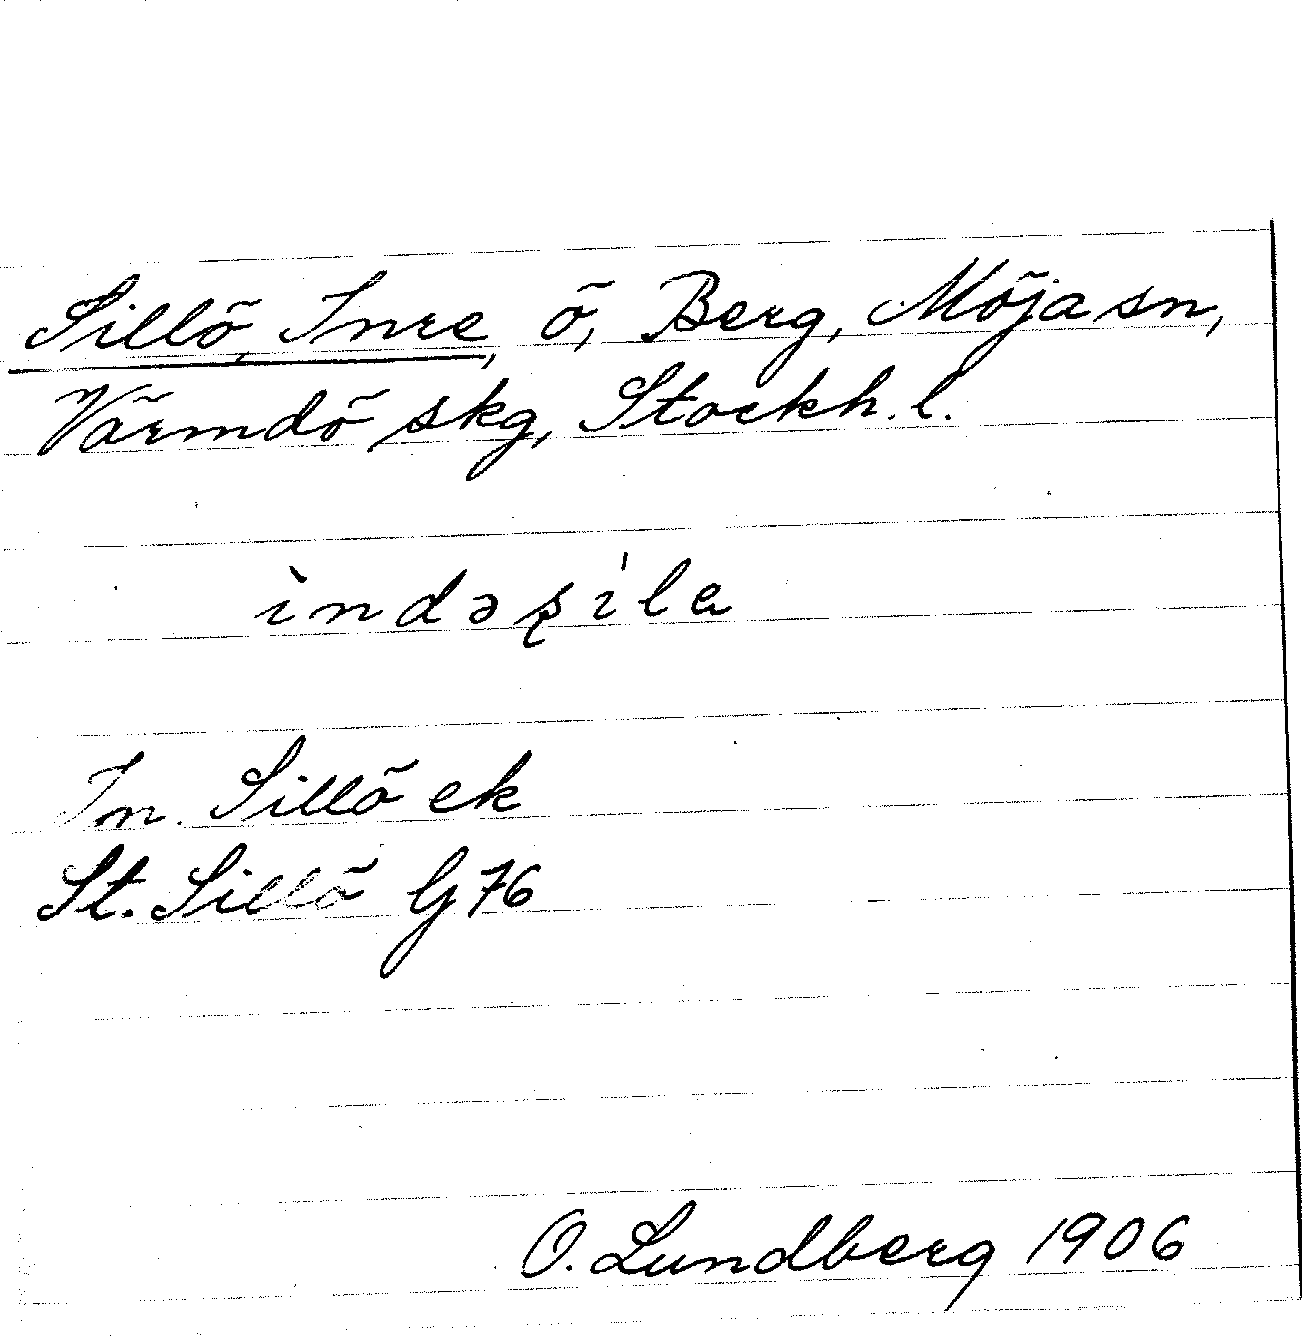 Sillö, Inre, ö, Berg, Möja sn,
Värmdö skg, Stockh. l.
ìndəʂìla
In. Sillö ek
St. Sillö G 76
O. Lundberg 1906